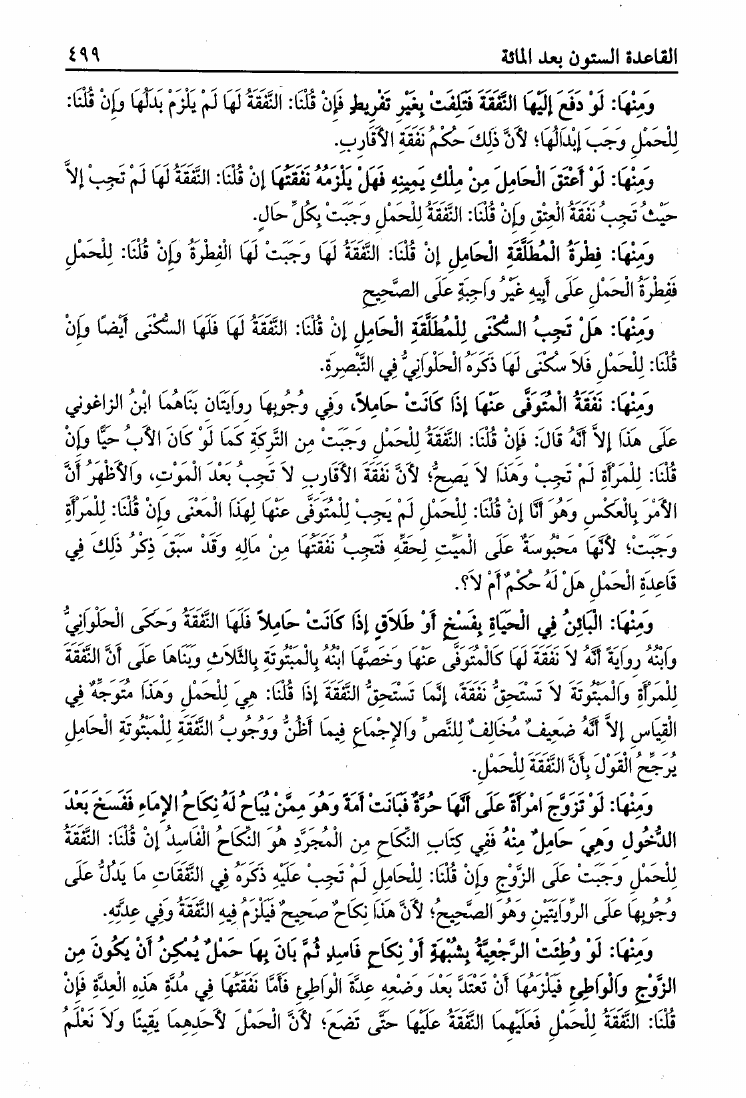 القاعدة الستون بعد المائة ٤٩٩
وَمِنْهَا: لَوْ دَفَعَ إِلَيْهَا النَّفَقَةَ فَتَلِفَتْ بِغَيْرِ تَفْرِيطٍ فَإِنْ قُلْنَا: النَّفَقَةُ لَهَا لَمْ يَلْزَمْ بَدَلُهَا وَإِنْ قُلْنَا:
لِلْحَمْلِ وَجَبَ إِبْدَالُهَا؛ لأَنَّ ذَلِكَ حُكْمُ نَفَقَةِ الأَقَارِبِ.
وَمِنْهَا: لَوْ أَعْتَقَ الْحَامِلَ مِنْ مِلْكِ يَمِينِهِ فَهَلْ يَلْزَمُهُ نَفَقَتُهَا إِنْ قُلْنَا: النَّفَقَةُ لَهَا لَمْ تَجِبْ إِلاَّ
حَيْثُ تَجِبُ نَفَقَةُ الْعِتْقِ وَإِنْ قُلْنَا: النَّفَقَةُ لِلْحَمْلِ وَجَبَتْ بِكُلِّ حَالٍ.
وَمِنْهَا: فِطْرَةُ الْمُطَلَّقَةِ الْحَامِلِ إِنْ قُلْنَا: النَّفَقَةُ لَهَا وَجَبَتْ لَهَا الْفِطْرَةُ وَإِنْ قُلْنَا: لِلْحَمْلِ
فَفِطْرَةُ الْحَمْلِ عَلَى أَبِيهِ غَيْرُ وَاجِبَةٍ عَلَى الصَّحِيحِ
وَمِنْهَا: هَلْ تَجِبُ السُّكْنَى لِلْمُطَلَّقَةِ الْحَامِلِ إِنْ قُلْنَا: النَّفَقَةُ لَهَا فَلَهَا السُّكْنَى أَيْضًا وَإِنْ
قُلْنَا: لِلْحَمْلِ فَلاَ سُكْنَى لَهَا ذَكَرَهُ الْحَلْوَانِيُّ فِي التَّبْصِرَةِ.
وَمِنْهَا: نَفَقَةُ الْمُتَوَفَّى عَنْهَا إِذَا كَانَتْ حَامِلاً، وَفِي وُجُوبِهَا رِوَايَتَانِ بَنَاهُمَا ابْنُ الزاغوني
عَلَى هَذَا إِلاَّ أَنَّهُ قَالَ: فَإِنْ قُلْنَا: النَّفَقَةُ لِلْحَمْلِ وَجَبَتْ مِنِ التَّرِكَةِ كَمَا لَوْ كَانَ الأَبُ حَيًّا وَإِنْ
قُلْنَا: لِلْمَرْأَةِ لَمْ تَجِبْ وَهَذَا لاَ يَصِحُّ؛ لأَنَّ نَفَقَةَ الأَقَارِبِ لاَ تَجِبُ بَعْدَ الْمَوْتِ، وَالأَظْهَرُ أَنَّ
الأَمْرَ بِالْعَكْسِ وَهُوَ أَنَّا إِنْ قُلْنَا: لِلْحَمْلِ لَمْ يَجِبْ لِلْمُتَوَفَّى عَنْهَا لِهَذَا الْمَعْنَى وَإِنْ قُلْنَا: لِلْمَرْأَةِ
وَجَبَتْ؛ لأَنَّهَا مَحْبُوسَةٌ عَلَى الْمَيِّتِ لِحَقِّهِ فَتَجِبُ نَفَقَتُهَا مِنْ مَالِهِ وَقَدْ سَبَقَ ذِكْرُ ذَلِكَ فِي
قَاعِدَةِ الْحَمْلِ هَلْ لَهُ حُكْمٌ أَمْ لاَ؟.
وَمِنْهَا: الْبَائِنُ فِي الْحَيَاةِ بِفَسْخٍ أَوْ طَلاَقٍ إِذَا كَانَتْ حَامِلاً فَلَهَا النَّفَقَةُ وَحَكَى الْحَلْوَانِيُّ
وَابْنُهُ رِوَايَةً أَنَّهُ لاَ نَفَقَةَ لَهَا كَالْمُتَوَفَّى عَنْهَا وَخَصَّهَا ابْنُهُ بِالْمَبْتُوتَةِ بِالثَّلاَثِ وَبَنَاهَا عَلَى أَنَّ النَّفَقَةَ
لِلْمَرْأَةِ وَالْمَبْتُوتَةَ لاَ تَسْتَحِقُّ نَفَقَةً، إِنَّمَا تَسْتَحِقُّ النَّفَقَةَ إِذَا قُلْنَا: هِيَ لِلْحَمْلِ وَهَذَا مُتَوَجِّهٌ فِي
الْقِيَاسِ إِلاَّ أَنَّهُ ضَعِيفٌ مُخَالِفٌ لِلنَّصِّ وَالإِجْمَاعِ فِيمَا أَظُنُّ وَوُجُوبُ النَّفَقَةِ لِلْمَبْتُوتَةِ الْحَامِلِ
يُرَجِّحُ الْقَوْلَ بِأَنَّ النَّفَقَةَ لِلْحَمْلِ.
وَمِنْهَا: لَوْ تَزَوَّجَ امْرَأَةً عَلَى أَنَّهَا حُرَّةٌ فَبَانَتْ أَمَةً وَهُوَ مِمَّنْ يُبَاحُ لَهُ نِكَاحُ الإِمَاءِ فَفَسَخَ بَعْدَ
الدُّخُولِ وَهِيَ حَامِلٌ مِنْهُ فَفِي كِتَابِ النِّكَاحِ مِنِ الْمُجَرَّدِ هُوَ النِّكَاحُ الْفَاسِدُ إِنْ قُلْنَا: النَّفَقَةُ
لِلْحَمْلِ وَجَبَتْ عَلَى الزَّوْجِ وَإِنْ قُلْنَا: لِلْحَامِلِ لَمْ تَجِبْ عَلَيْهِ ذَكَرَهُ فِي النَّفَقَاتِ مَا يَدُلُّ عَلَى
وُجُوبِهَا عَلَى الرِّوَايَتَيْنِ وَهُوَ الصَّحِيحُ؛ لأَنَّ هَذَا نِكَاحٌ صَحِيحٌ فَيَلْزَمُ فِيهِ النَّفَقَةُ وَفِي عِدَّتِهِ.
وَمِنْهَا: لَوْ وُطِئَتْ الرَّجْعِيَّةُ بِشُبْهَةٍ أَوْ نِكَاحٍ فَاسِدٍ ثُمَّ بَانَ بِهَا حَمْلٌ يُمْكِنُ أَنْ يَكُونَ مِن
الزَّوْجِ وَالْوَاطِئِ فَيَلْزَمُهَا أَنْ تَعْتَدَّ بَعْدَ وَضْعِهِ عِدَّةَ الْوَاطِئِ فَأَمَّا نَفَقَتُهَا فِي مُدَّةِ هَذِهِ الْعِدَّةِ فَإِنْ
قُلْنَا: النَّفَقَةُ لِلْحَمْلِ فَعَلَيْهِمَا النَّفَقَةُ عَلَيْهَا حَتَّى تَضَعَ؛ لأَنَّ الْحَمْلَ لأَحَدِهِمَا يَقِينًا وَلاَ نَعْلَمُ